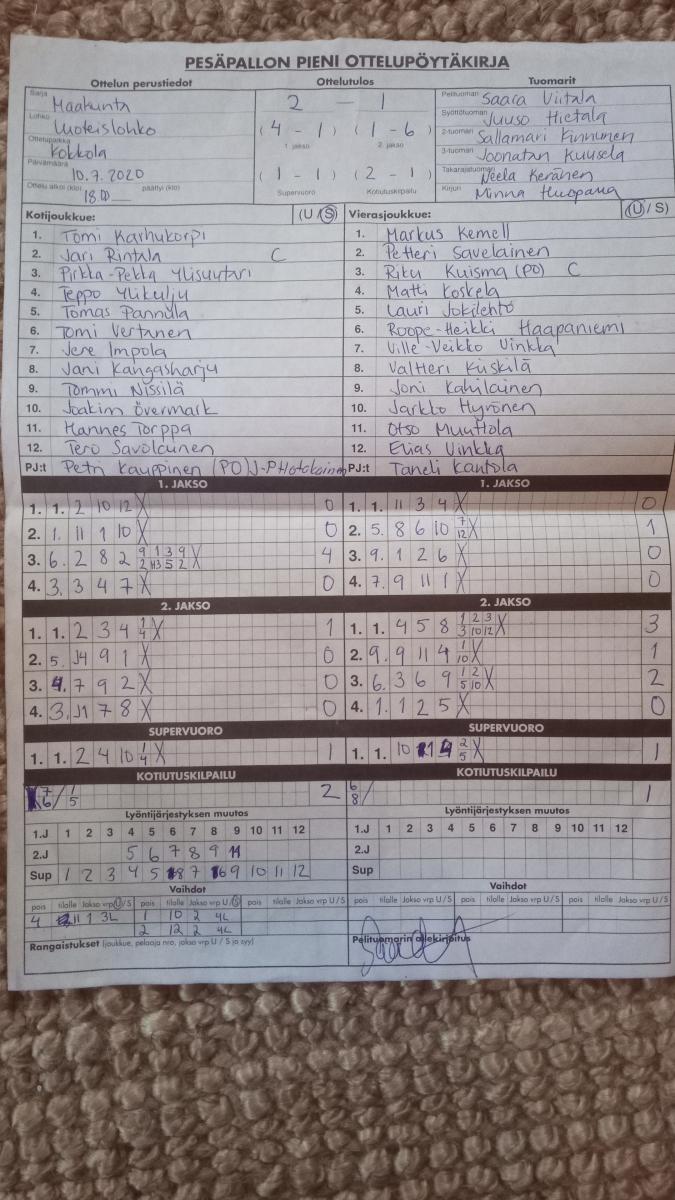 PESÄPALLON PIENI OTTELUPÖYTÄKIRJA
Ottelun perustiedot Ottelutulos Tuomarit
Sarja Maakunta
Lohko Luoteislohko
Ottelupaikka Kokkola
Päivämäärä 10.7.2020
Ottelu alkoi (klo) 18.00 päättyi (klo)
2 - 1
( 4 - 1 ) ( 1 - 6 )
1. jakso 2. jakso
( 1 - 1 ) ( 2 - 1 )
Supervuoro Kotiutuskilpailu
Pelituomari Saara Viitala
Syöttötuomari Juuso Hietala
2-tuomari Sallamari Kinnunen
3-tuomari Joonatan Kuusela
Takarajatuomari Neela Keränen
Kirjuri Minna Huopana
Kotijoukkue: (U / S)
1. Tomi Karhukorpi
2. Jari Rintala C
3. Pirkka-Pekka Ylisuutari
4. Teppo Ylikulju
5. Tomas Pannula
6. Tomi Vertanen
7. Jere Impola
8. Jani Kangasharju
9. Tommi Nissilä
10. Joakim Övermark
11. Hannes Torppa
12. Tero Savolainen
PJ:t Petri Kauppinen (PO) J-P Hotakainen
Vierasjoukkue: (U / S)
1. Markus Kemell
2. Petteri Savelainen
3. Riku Kuisma (PO) C
4. Matti Koskela
5. Lauri Jokilehto
6. Roope-Heikki Haapaniemi
7. Ville-Veikko Vinkka
8. Valtteri Kiiskilä
9. Joni Kahilainen
10. Jarkko Hyrönen
11. Otso Muuttola
12. Elias Vinkka
PJ:t Taneli Kantola
1. JAKSO
1. 1. 2 10 12 X 0
2. 1. 11 1 10 X 0
3. 6. 2 8 2 X 4
4. 3. 3 4 7 X 0
2. JAKSO
1. 1. 2 3 4 1/4 X 1
2. 5. 9 1 X 0
3. 4. 7 9 2 X 0
4. 3. 11 7 8 X 0
SUPERVUORO
1. 1. 2 4 10 1/4 X 1
KOTIUTUSKILPAILU
7/6 / 1/5 2
1. JAKSO
1. 1. 11 3 4 X 0
2. 5. 8 6 10 7/12 X 1
3. 9. 1 2 6 X 0
4. 7. 9 11 1 X 0
2. JAKSO
1. 1. 4 5 8 1/3 2/10 3/12 X 3
2. 9. 9 11 4 1/10 X 1
3. 6. 3 6 9 1/5 2/10 X 2
4. 1. 1 2 5 X 0
SUPERVUORO
1. 1. 10 4 2/5 X 1
KOTIUTUSKILPAILU
6/8 / 1
Lyöntijärjestyksen muutos
1.J 1 2 3 4 5 6 7 8 9 10 11 12
2.J 5 6 7 8 9 11
Sup 1 2 3 4 5 8 7 6 9 10 11 12
Vaihdot
pois tilalle Jakso vrp U / S pois tilalle Jakso vrp U / S
4 11 1 3L 1 10 2 4L
2 12 2 4L
Rangaistukset (joukkue, pelaaja nro, jakso vrp U / S ja syy)
Lyöntijärjestyksen muutos
1.J 1 2 3 4 5 6 7 8 9 10 11 12
2.J
Sup
Vaihdot
pois tilalle Jakso vrp U / S pois tilalle Jakso vrp U / S
Pelituomarin allekirjoitus